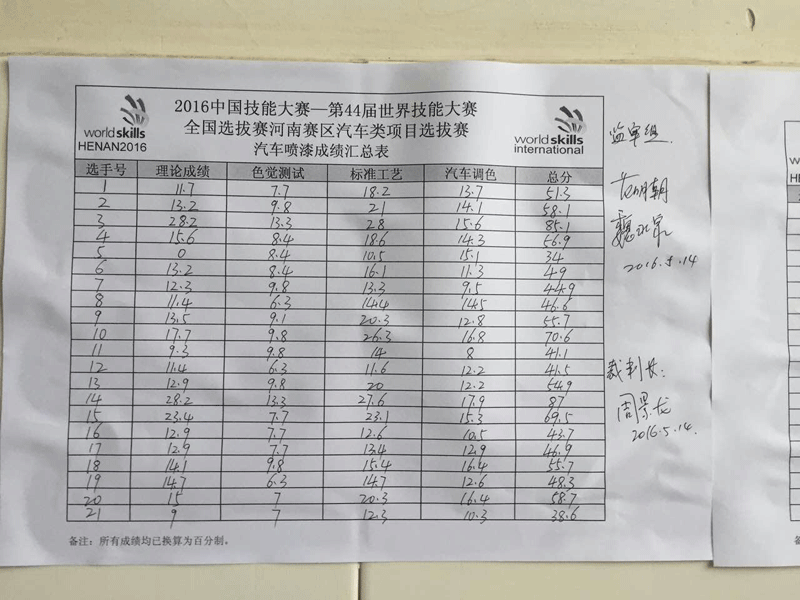 worldskills
HENAN2016
2016中国技能大赛—第44届世界技能大赛
全国选拔赛河南赛区汽车类项目选拔赛
汽车喷漆成绩汇总表
worldskills
international
选手号 理论成绩 色觉测试 标准工艺 汽车调色 总分
1 11.7 7.7 18.2 13.7 51.3
2 13.2 9.8 21 14.1 58.1
3 28.2 13.3 28 15.6 85.1
4 15.6 8.4 18.6 14.3 56.9
5 0 8.4 10.5 15.1 34
6 13.2 8.4 16.1 11.3 49
7 12.3 9.8 13.3 9.5 44.9
8 11.4 6.3 14.4 14.5 46.6
9 13.5 9.1 20.3 12.8 55.7
10 17.7 9.8 26.3 16.8 70.6
11 9.3 9.8 14 8 41.1
12 11.4 6.3 11.6 12.2 41.5
13 12.9 9.8 20 12.2 54.9
14 28.2 13.3 27.6 17.9 87
15 23.4 7.7 23.1 15.3 69.5
16 12.9 7.7 12.6 10.5 43.7
17 12.9 7.7 13.4 12.9 46.9
18 14.1 9.8 15.4 16.4 55.7
19 14.7 6.3 14.7 12.6 48.3
20 15 7 20.3 16.4 58.7
21 9 7 12.3 10.3 38.6
备注：所有成绩均已换算为百分制。
监审组
2016.5.14
裁判长：
周景龙
2016.5.14